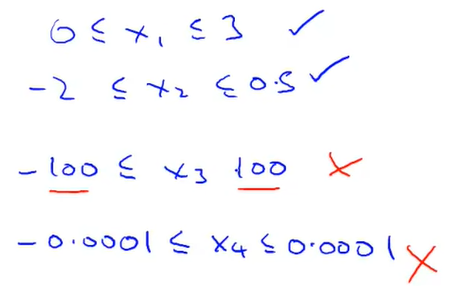 0 ≤ x₁ ≤ 3 ✓
-2 ≤ x₂ ≤ 0.5 ✓
-100 ≤ x₃ 100 ✗
-0.0001 ≤ x₄ ≤ 0.0001 ✗